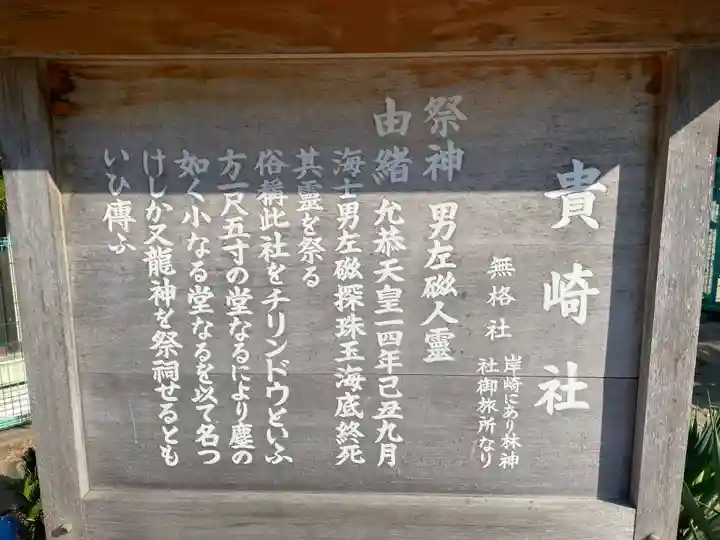 貴崎社
無格社
岸崎にあり林神
社御旅所なり
祭神 男左磁人靈
由緒 允恭天皇一四年己丑九月
海士男左磁探珠玉海底終死
其靈を祭る
俗稱此社をチリンドウといふ
方一尺五寸の堂なるにより塵の
如く小なる堂なるを以て名つ
けしか又龍神を祭祠せるとも
いひ傳ふ